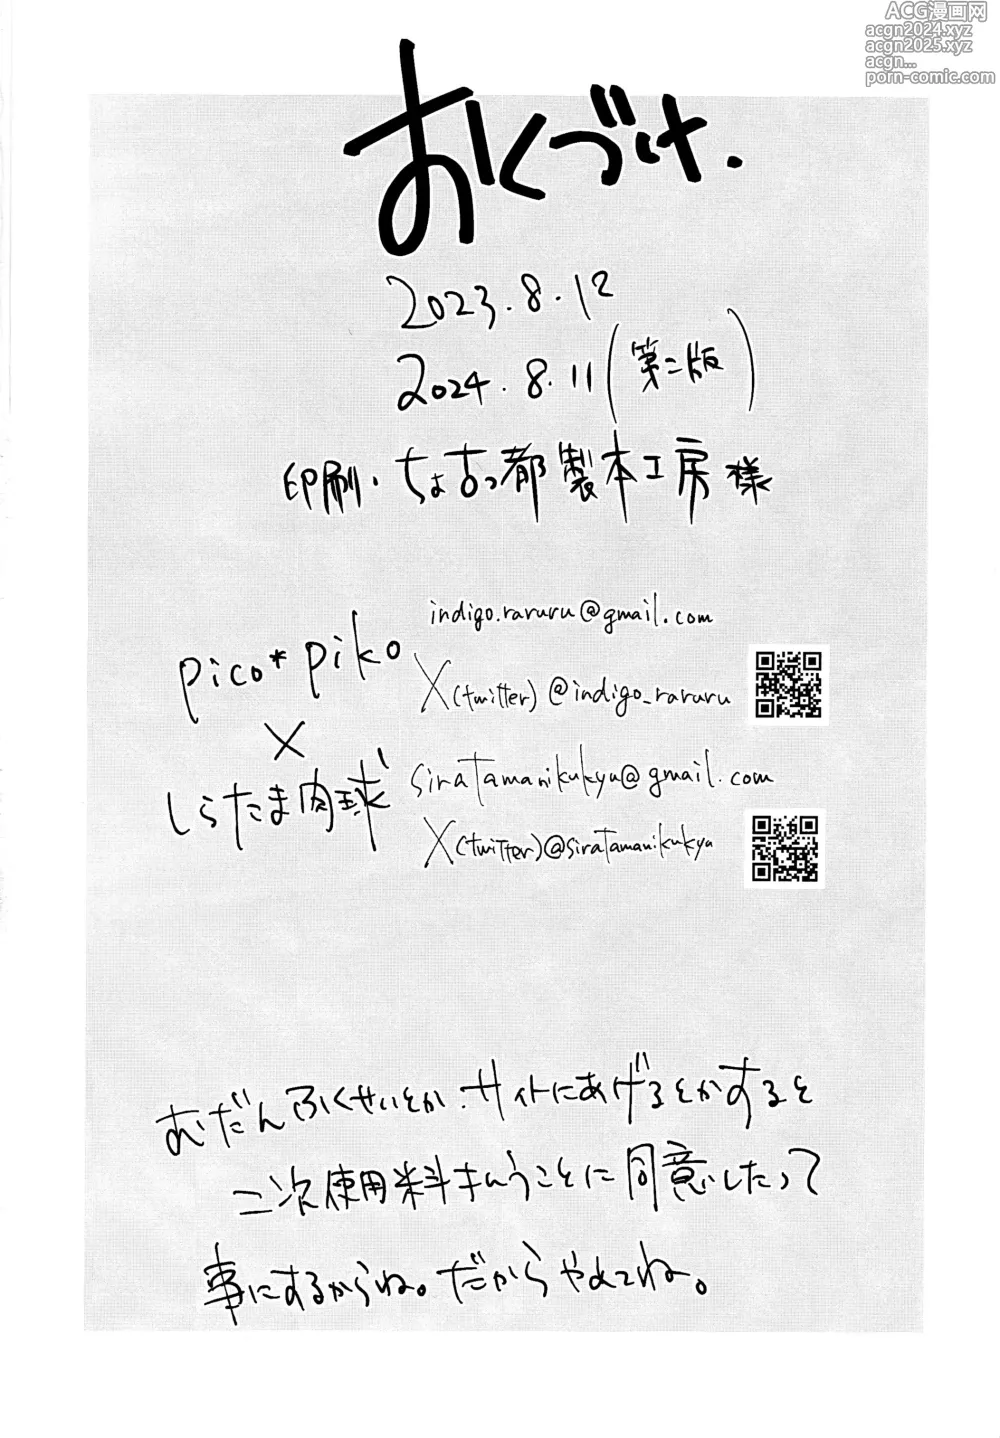 ACG漫画网
acgn2024.xyz
acgn2025.xyz
acgn...
porn-comic.com
おくづけ.
2023.8.12
2024.8.11(第二版)
印刷・ちょ古っ都製本工房様
pico*piko
indigo.raruru@gmail.com
X(twitter) @indigo_raruru
×
しらたま肉球
siratamanikukyu@gmail.com
X(twitter)@siratamanikukyu
むだんふくせいとか、サイトにあげるとかすると
二次使用料はらうことに同意したって
事にするからね。だからやめてね。